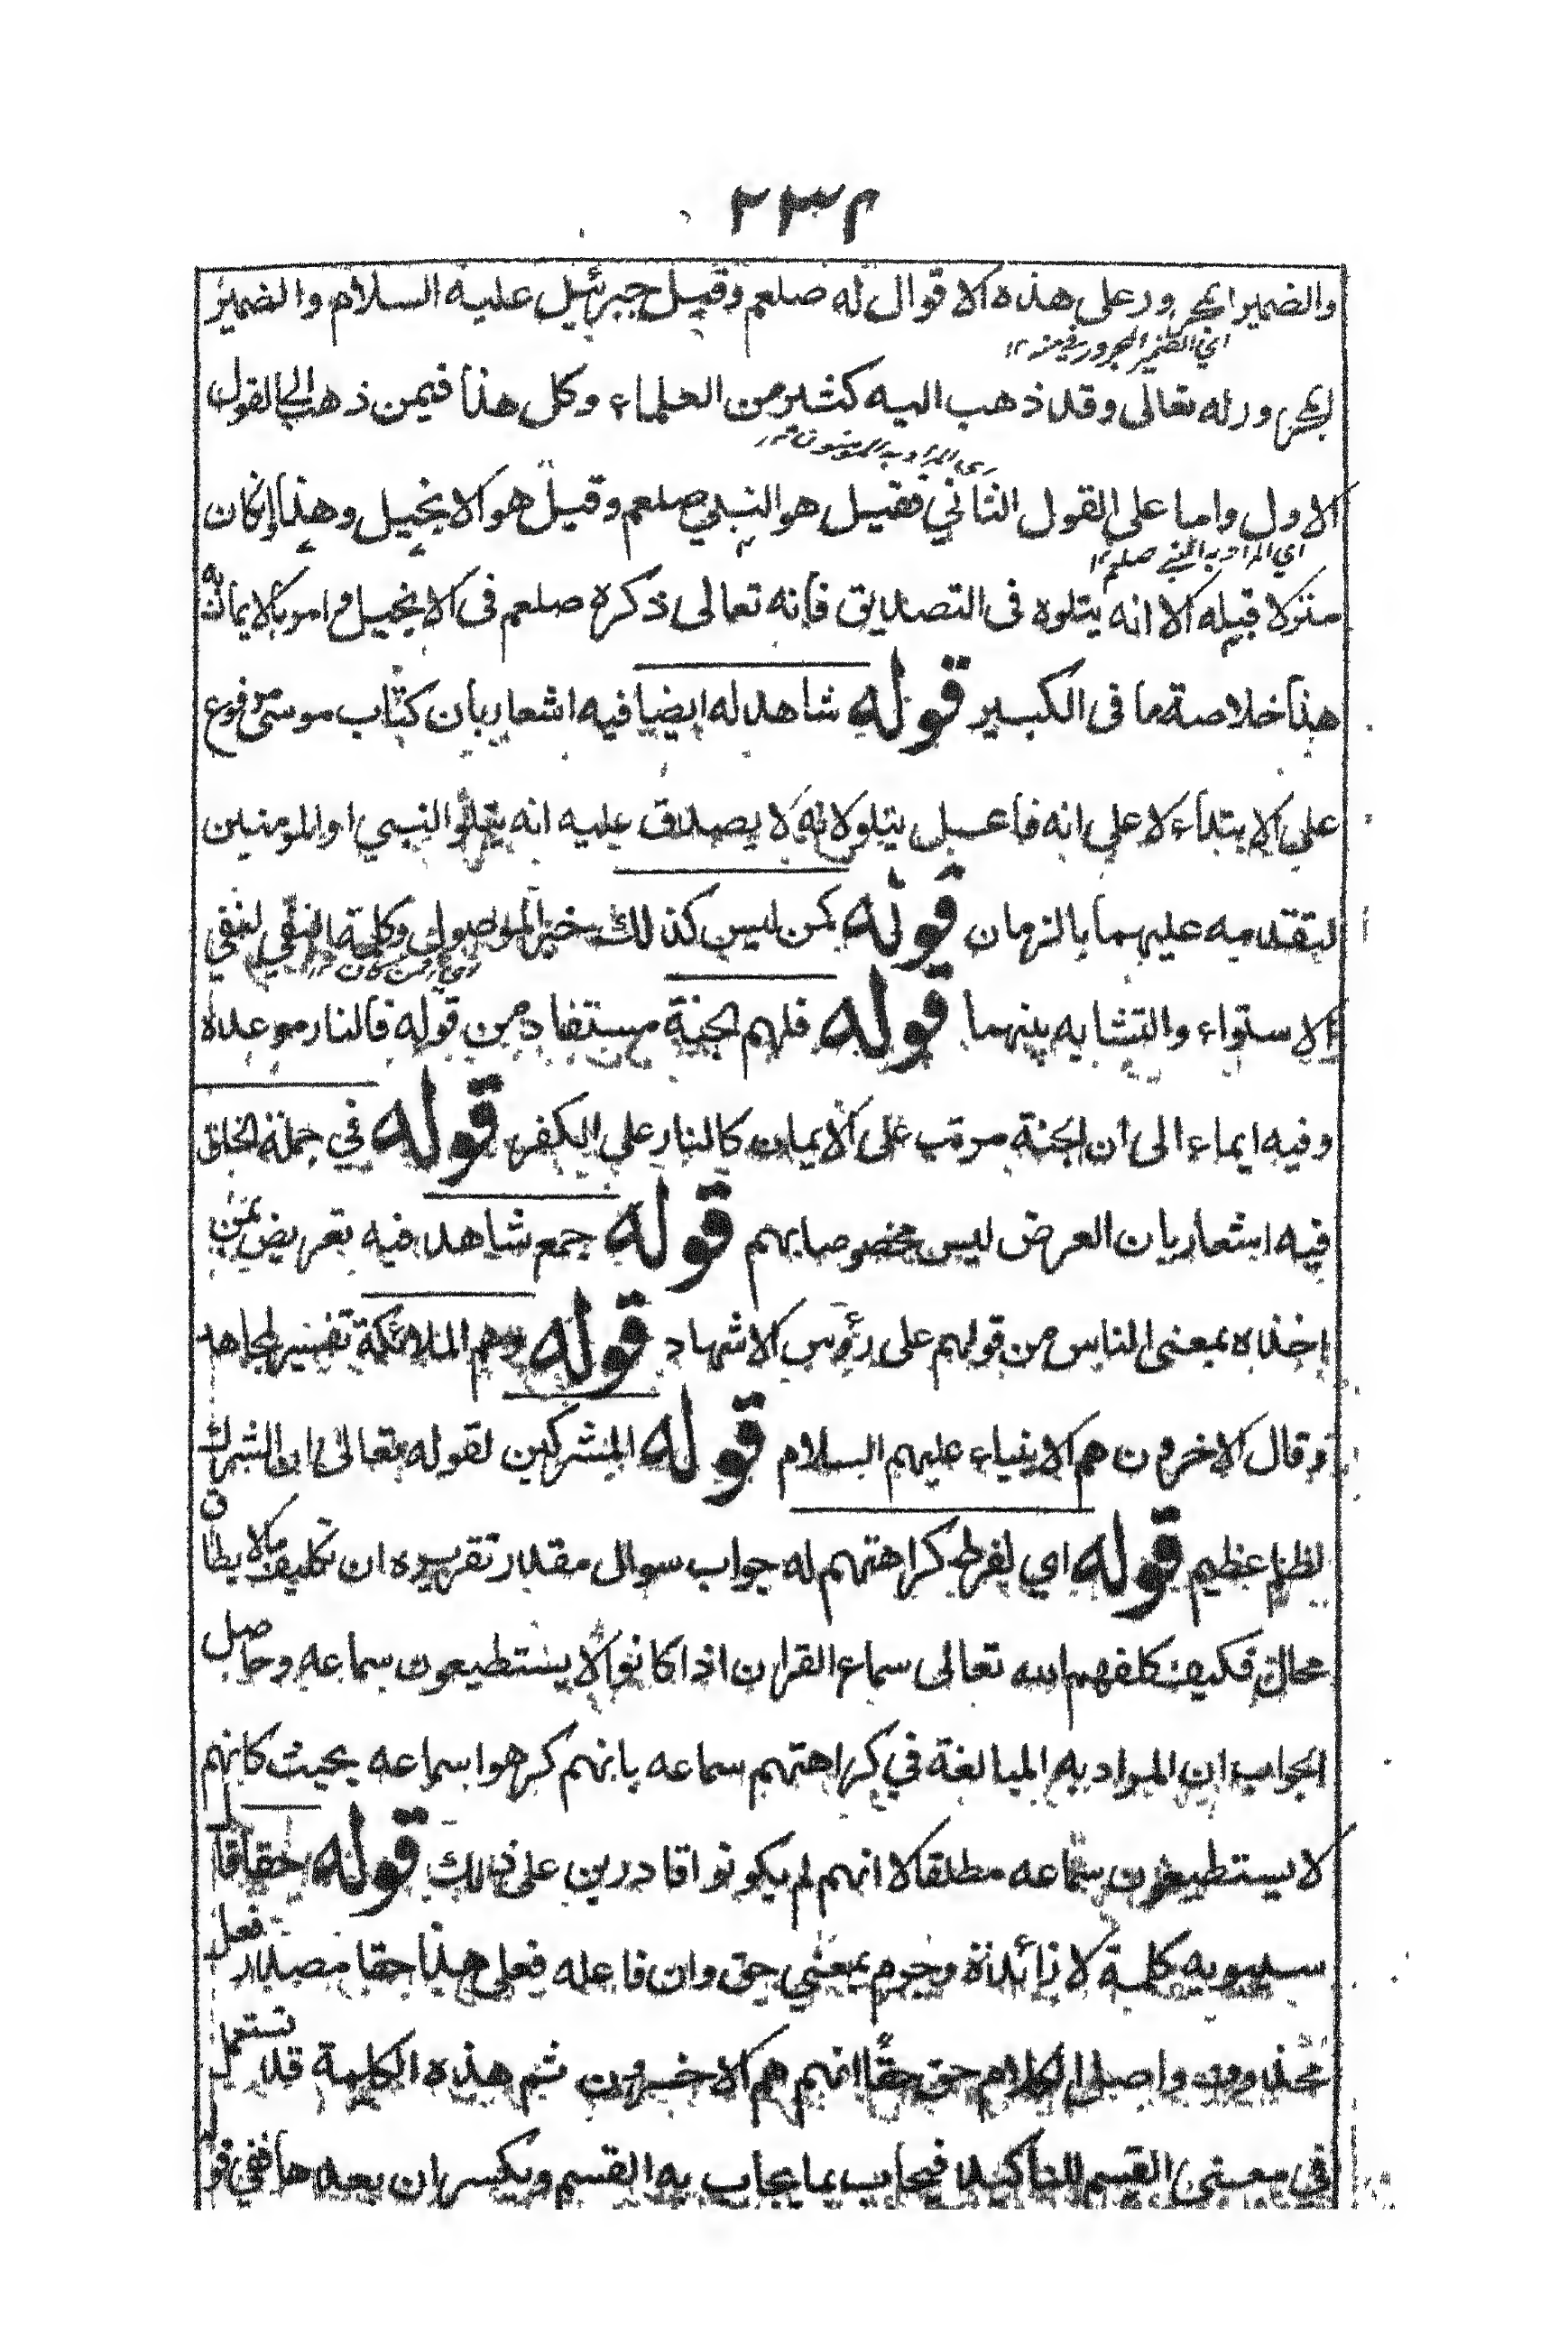 ٢٣٢
والضمير المجرور على هذه الاقوال له صلعم وقيل جبرئيل عليه السلام والضمير
اي الضمير المجرور في منه ١٢
المجرور له تعالى وقد ذهب اليه كثير من العلماء وكل هذا فيمن ذهب الى القول
اي المراد به المؤمنون
الاول واما على القول الثاني فقيل هو النبي صلعم وقيل هو الانجيل وهذا وان كان
اي المراد به النبي صلعم ١٢
منزلا قبله الا انه يتلوه فى التصديق فانه تعالى ذكره صلعم فى الانجيل وامر بالايمان به
هذا خلاصة ما فى الكبير قوله شاهد له ايضا فيه اشعار بان كتاب موسى مرفوع
على الابتداء لا على انه فاعل يتلو لانه لا يصدق عليه انه يتلو النبي او المومنين
لتقدمه عليهما بالزمان قوله كمن ليس كذلك خبر الموصول وكلمة النفي لنفي
اي أفمن كان
الاستواء والتشابه بينهما قوله فلهم الجنة مستفاد من قوله فالنار موعده
وفيه ايماء الى ان الجنة مرتب على الايمان كالنار على الكفر قوله في جملة الخلق
فيه اشعار بان العرض ليس مخصوصا بهم قوله جمع شاهد فيه تعريض بمن
اخذه بمعنى الناس من قولهم على رؤس الاشهاد قوله وهم الملائكة تفسير لمجاهد
وقال الاخرون هم الانبياء عليهم السلام قوله المشركين لقوله تعالى ان الشرك
لظلم عظيم قوله اي لفرط كراهتهم له جواب سوال مقدر تقريره ان تكليف مالا يطاق
محال فكيف كلفهم الله تعالى سماع القران اذا كانوا لا يستطيعون سماعه وحاصل
الجواب ان المراد به المبالغة في كراهتهم سماعه بانهم كرهوا سماعه بحيث كانهم
لا يستطيعون سماعه مطلقا لا انهم لم يكونوا قادرين على ذلك قوله حقا قال
سيبويه كلمة لا زائدة وجرم بمعنى حق وان فاعله فعلى هذا حقا مصدر فعل
محذوف واصل الكلام حق حقا انهم هم الاخسرون ثم هذه الكلمة قد تستعمل
في معنى القسم للتاكيد فيجاب بما يجاب به القسم ويكسر ان بعدها ففي قوله